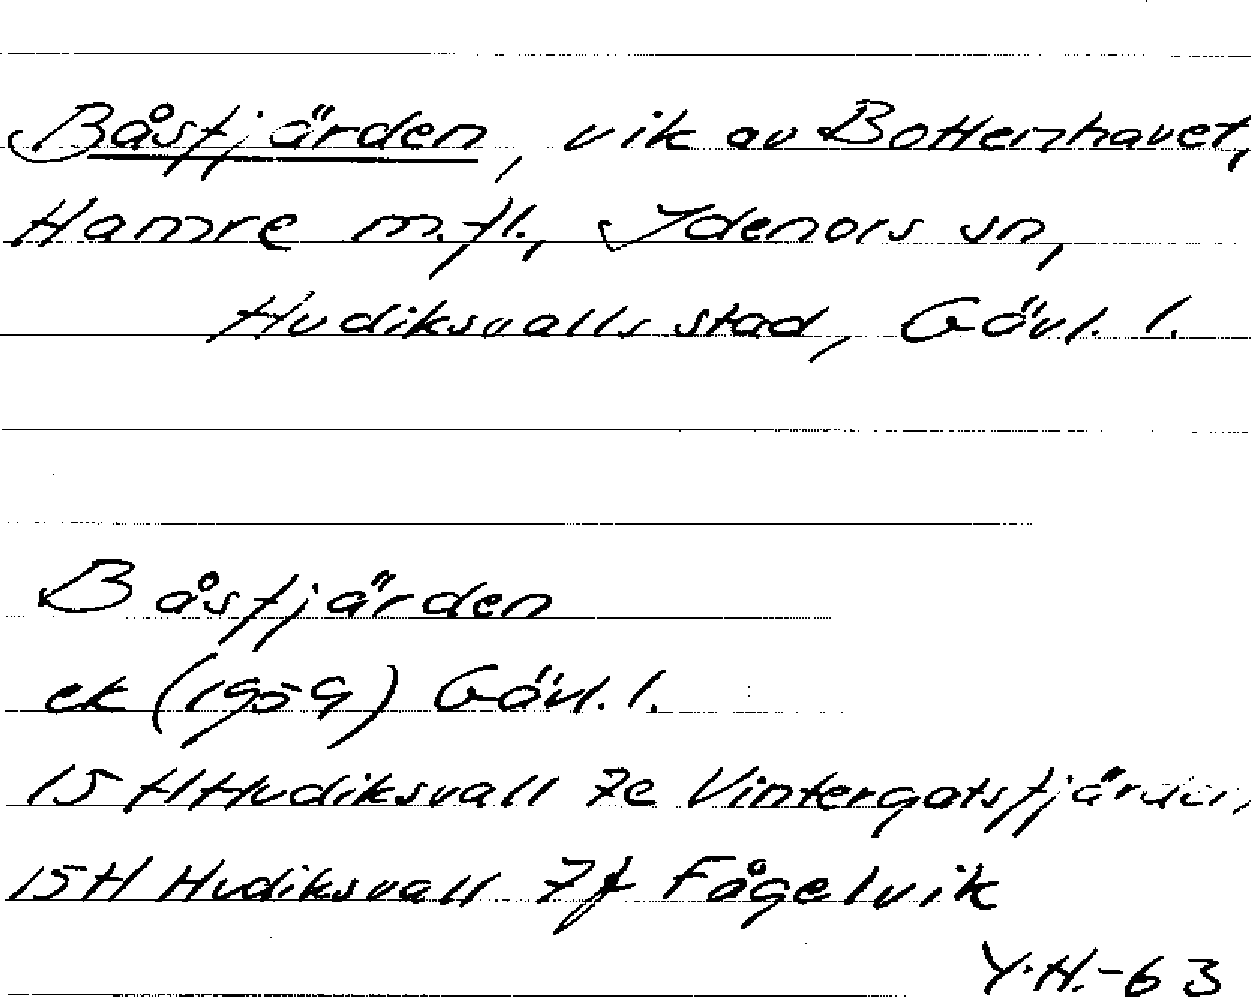 Båsfjärden, vik av Bottenhavet,
Hamre m.fl., Idenors sn,
Hudiksvalls stad, Gävl. l.
Båsfjärden
ek (1959) Gävl. l.
15 H Hudiksvall 7e Vintergatsfjärden,
15H Hudiksvall 7f Fågelvik
Y.H.-63